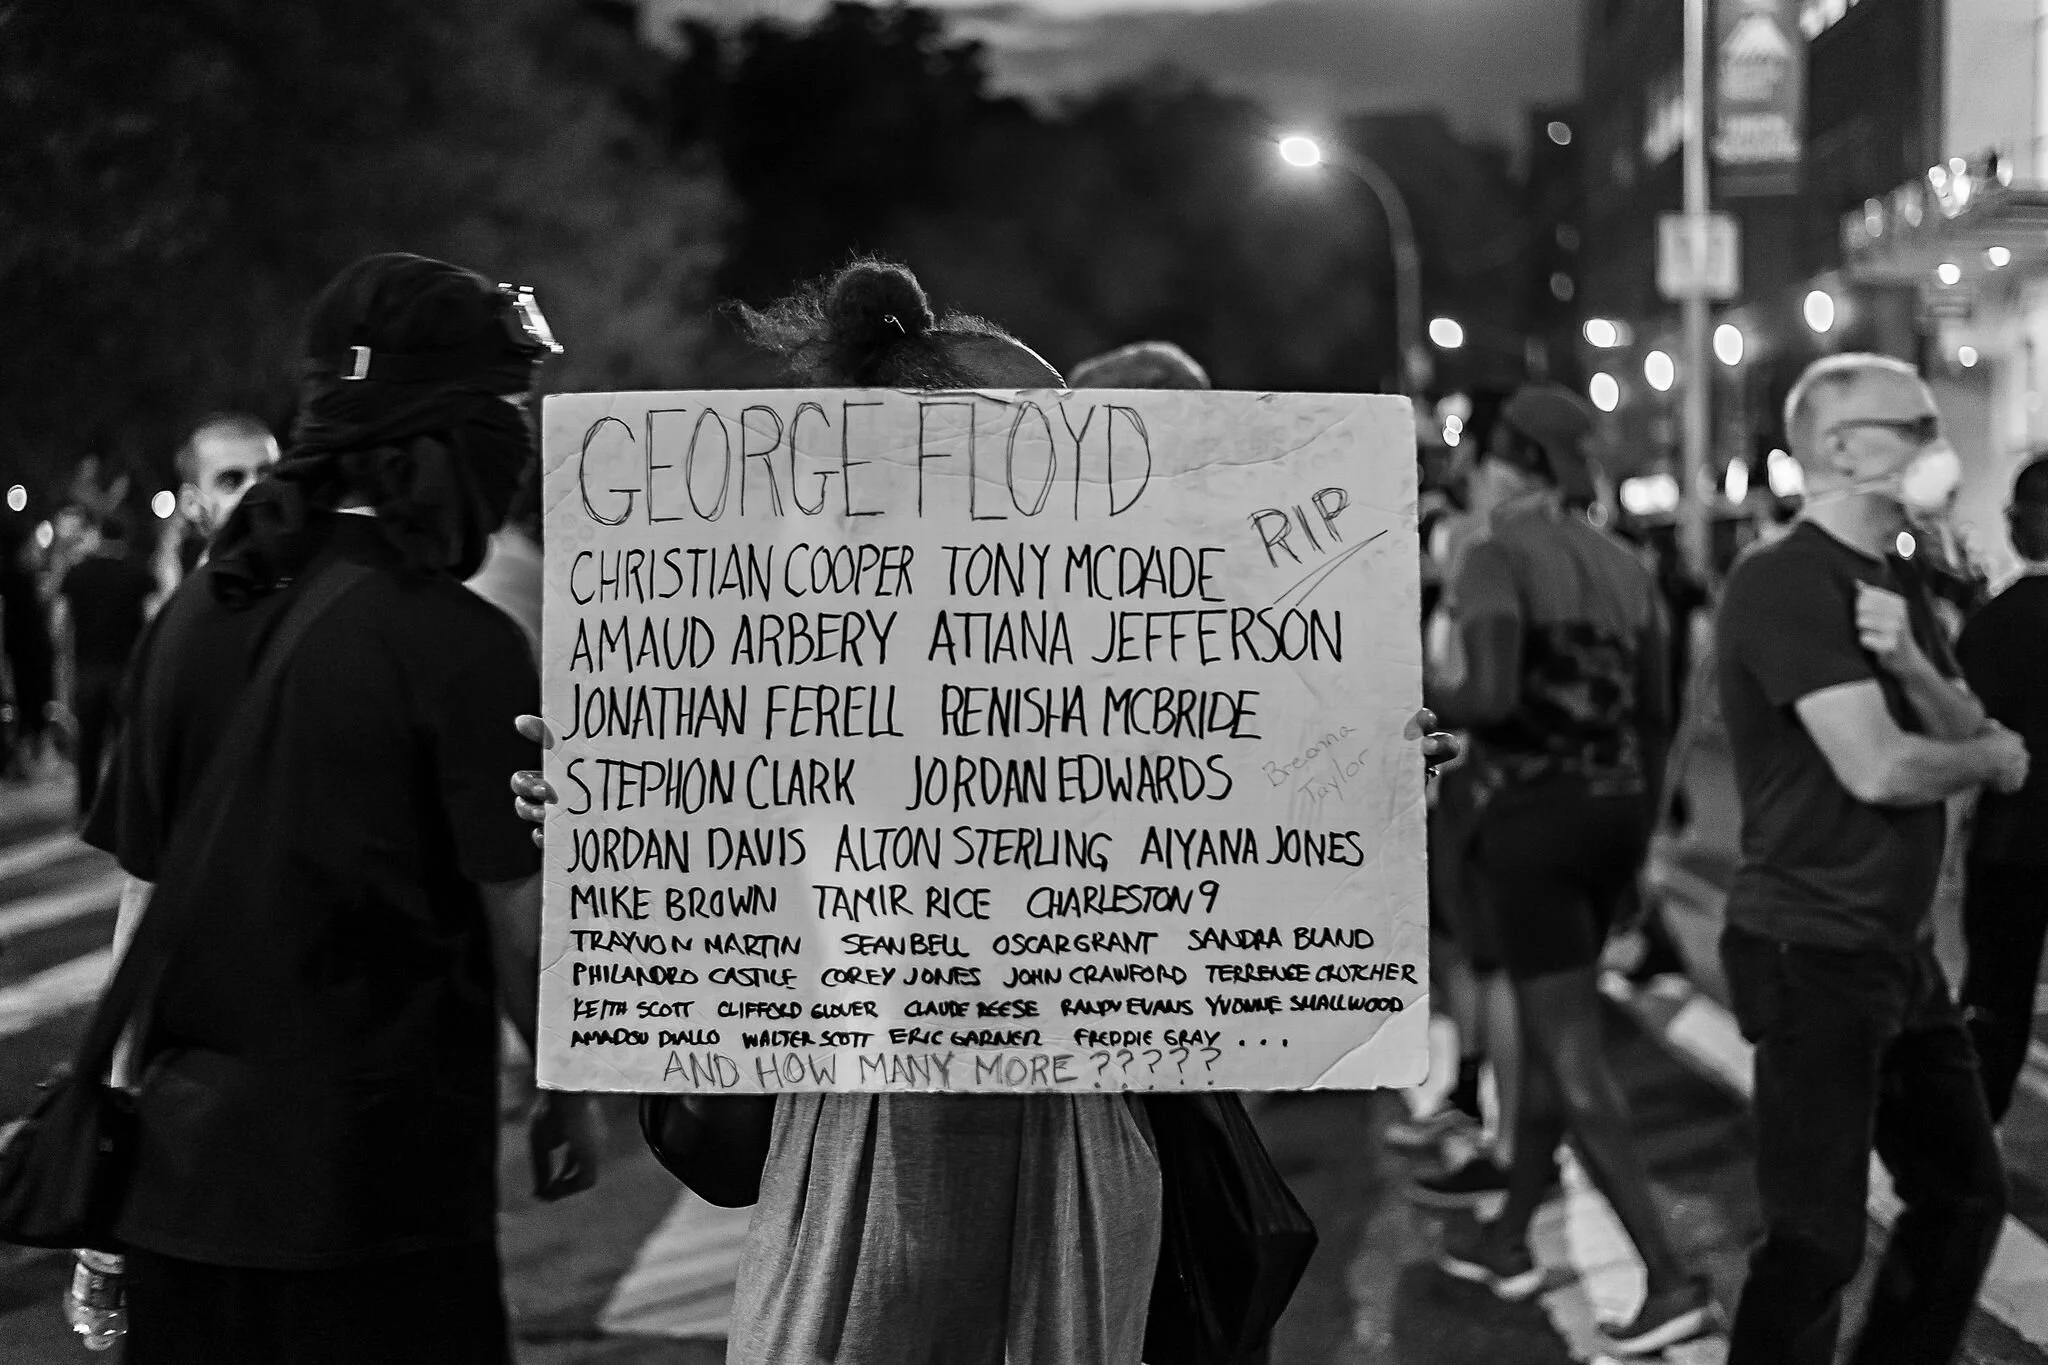 GEORGE FLOYD
RIP
CHRISTIAN COOPER TONY MCDADE
AMAUD ARBERY ATIANA JEFFERSON
JONATHAN FERELL RENISHA MCBRIDE
STEPHON CLARK JORDAN EDWARDS
Breanna
Taylor
JORDAN DAVIS ALTON STERLING AIYANA JONES
MIKE BROWN TAMIR RICE CHARLESTON 9
TRAYVON MARTIN SEAN BELL OSCAR GRANT SANDRA BLAND
PHILANDRO CASTILE COREY JONES JOHN CRAWFORD TERRENCE CRUTCHER
KEITH SCOTT CLIFFORD GLOVER CLAUDE REESE RANDY EVANS YVONNE SMALLWOOD
AMADOU DIALLO WALTER SCOTT ERIC GARNER FREDDIE GRAY ...
AND HOW MANY MORE ?????